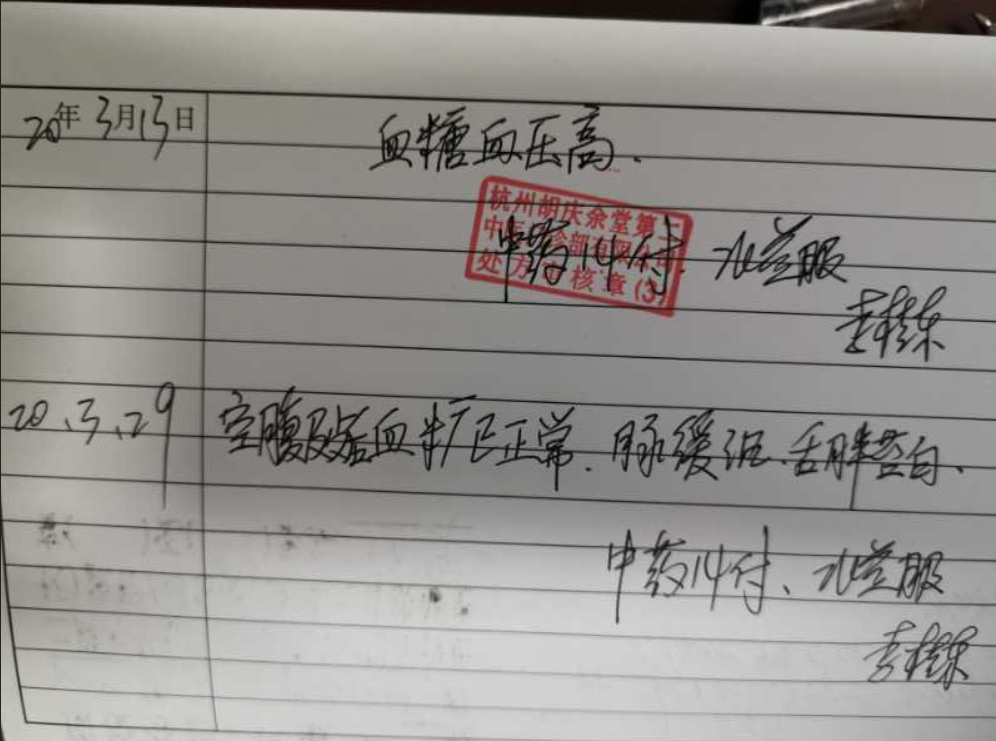 20年3月13日
血糖血压高.
杭州胡庆余堂第二
中医门诊部有限公司
处方审核章(3)
中药14付. 水煎服
李桂东
20、3、29 空腹及后血糖已正常. 脉缓沉. 舌胖苔白、
中药14付、水煎服
李桂东